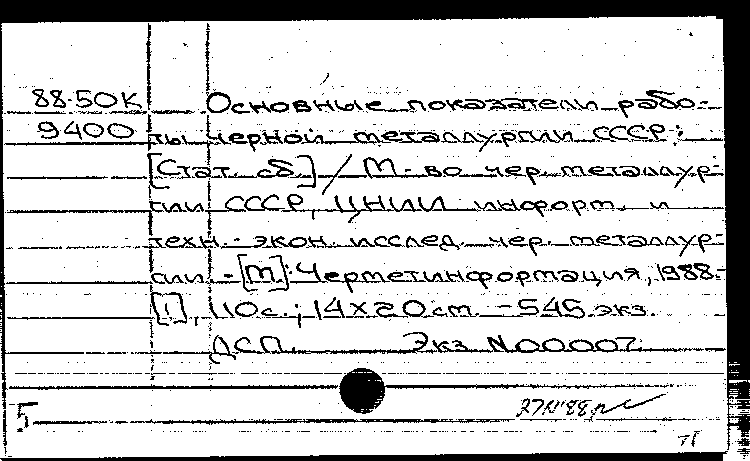 88-50К Основные показатели рабо-
9400 ты черной металлургии СССР:
[Стат. сб.] / М-во чер. металлур-
гии СССР, ЦНИИ информ. и
техн.-экон. исслед. чер. металлур-
гии. - [М.]: Черметинформация, 1988.-
[1], 110с.; 14×20 см. - 545 экз.
ДСП. Экз N00007.
5